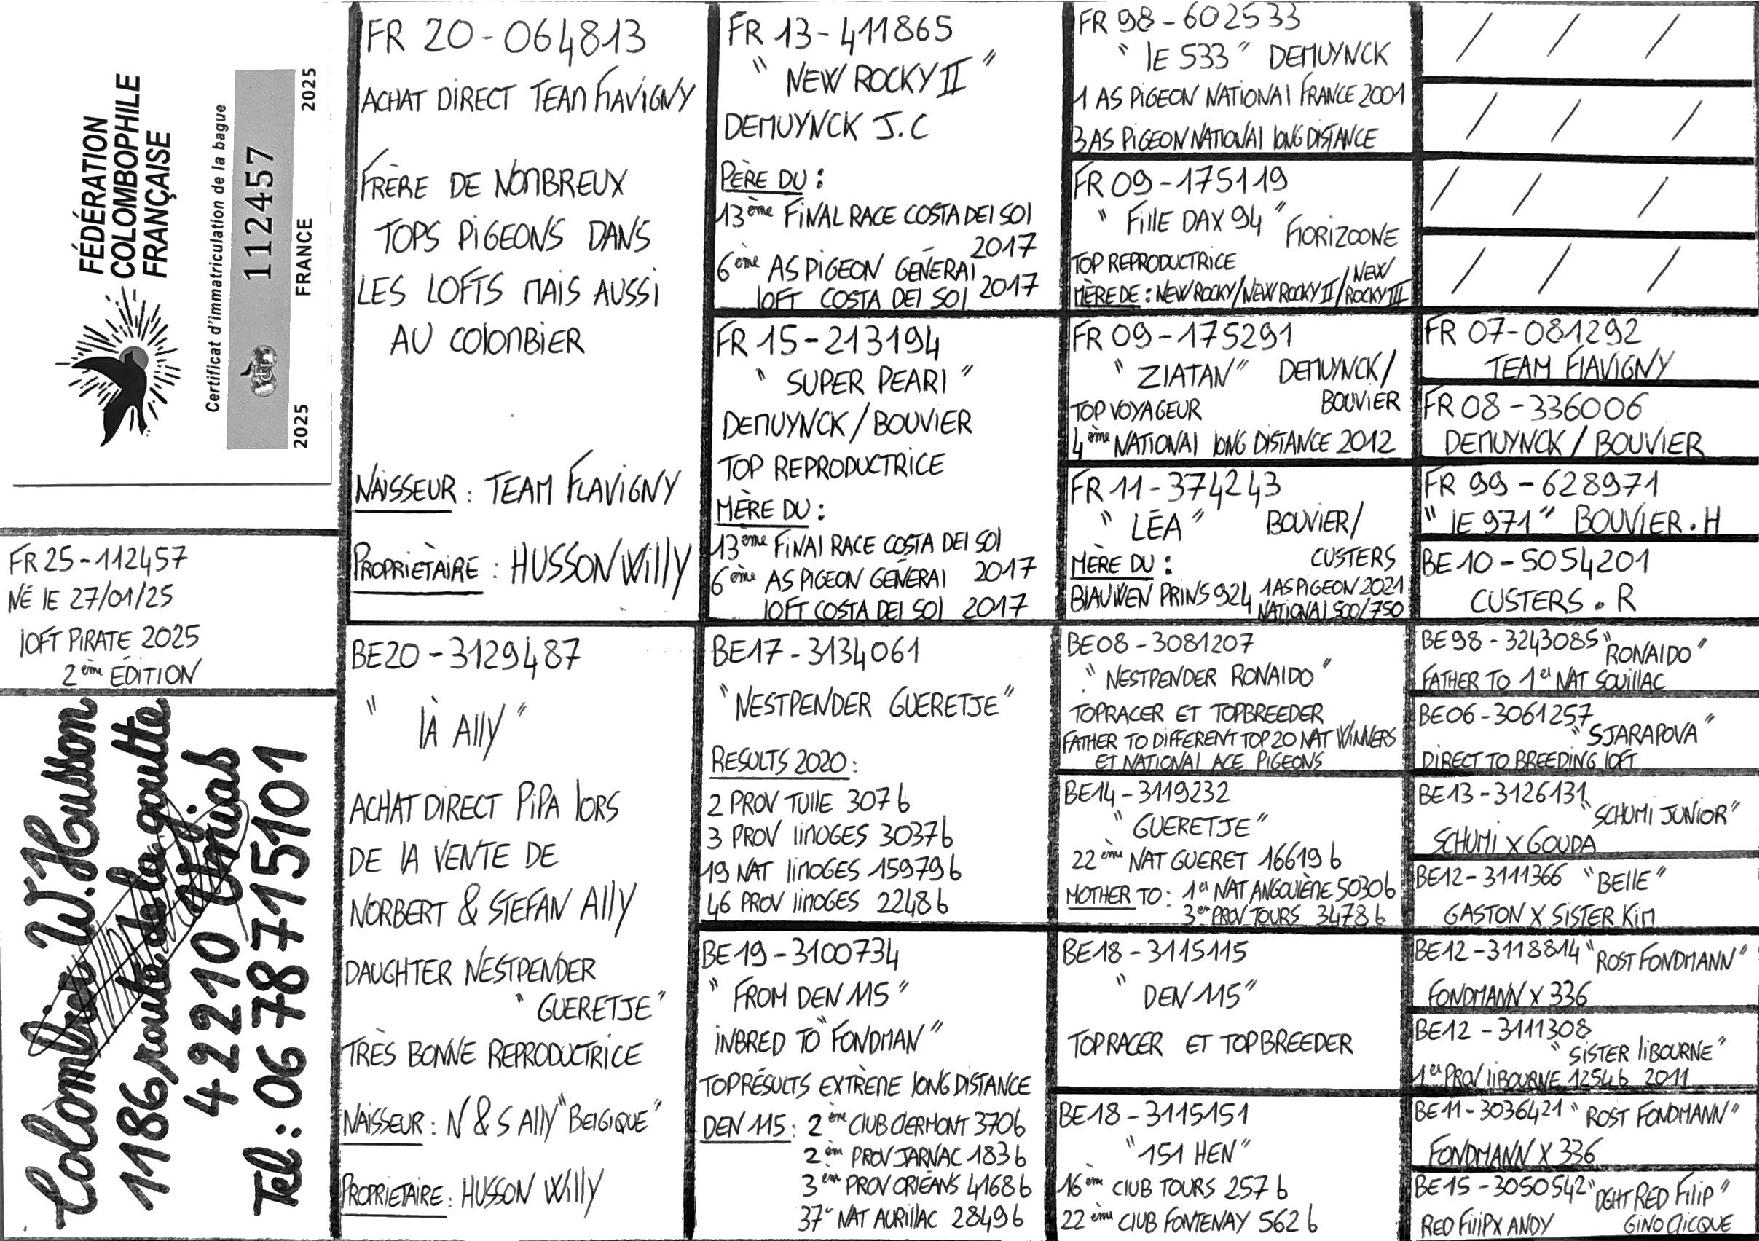 FÉDÉRATION
COLOMBOPHILE
FRANÇAISE
Certificat d'immatriculation de la bague
2025 112457 2025
FRANCE
FR 25-112457
NÉ lE 27/01/25
lOFT PIRATE 2025
2ème ÉDITION
Colombier W. Husson
1186 route de la goutte
42210 Unias
Tel : 06 78 71 51 01
FR 20-064813
ACHAT DIRECT TEAM FlAVIGNY
FRÈRE DE NOMBREUX
TOPS PIGEONS DANS
LES LOFTS MAIS AUSSI
AU COlOMBIER
NAISSEUR : TEAM FLAVIGNY
PROPRIÉTAIRE : HUSSON Willy
BE20-3129487
" lA Ally "
ACHAT DIRECT PiPA lORS
DE lA VENTE DE
NORBERT & STEFAN Ally
DAUGHTER NESTPENDER
"GUERETJE"
TRÈS BONNE REPRODUCTRICE
NAISSEUR : N & S Ally "BElGIQUE"
PROPRIETAIRE : HUSSON Willy
FR 13-411865
" NEW ROCKY II "
DEMUYNCK J.C
PÈRE DU :
13ème FINAL RACE COSTA DEl SOl
2017
6ème AS PIGEON GÉNÉRAl
lOFT COSTA DEl SOl 2017
FR 15-213194
" SUPER PEARl "
DEMUYNCK / BOUVIER
TOP REPRODUCTRICE
MÈRE DU :
13ème FINAl RACE COSTA DEl SOl
6ème AS PIGEON GÉNÉRAl 2017
lOFT COSTA DEl SOl 2017
BE17-3134061
"NESTPENDER GUERETJE"
RESULTS 2020 :
2 PROV TUllE 307 b
3 PROV liMOGES 3037 b
19 NAT liMOGES 15979 b
46 PROV liMOGES 2248 b
BE19-3100734
" FROM DEN 115 "
INBRED TO "FONDMAN"
TOPRÉSULTS EXTRÈME lONG DISTANCE
DEN 115 : 2ème ClUB ClERMONT 370 b
2ème PROV JARNAC 183 b
3ème PROV ORlÉANS 4168 b
37e NAT AURIllAC 2849 b
FR 98-602533
" lE 533 " DEMUYNCK
1 AS PIGEON NATIONAl FRANCE 2001
3 AS PIGEON NATIONAl lONG DISTANCE
FR 09-175119
" FIllE DAX 94 " FlORIZOONE
TOP REPRODUCTRICE
MÈRE DE : NEW ROCKY / NEW ROCKY II / NEW ROCKY III
FR 09-175291
" ZlATAN " DEMUYNCK /
BOUVIER
TOP VOYAGEUR
4ème NATIONAl lONG DISTANCE 2012
FR 11-374243
" LÉA " BOUVIER /
CUSTERS
MÈRE DU :
BlAUWEN PRINS 924 1 AS PIGEON 2021
NATIONAl 500/750
BE08-3081207
" NESTPENDER RONAlDO "
TOPRACER ET TOPBREEDER
FATHER TO DIFFERENT TOP 20 NAT WINNERS
ET NATIONAL ACE PIGEONS
BE14-3119232
"GUERETJE"
22ème NAT GUERET 16619 b
MOTHER TO : 1er NAT ANGOUlÈME 5030 b
3er PROV TOURS 3478 b
BE18-3115115
" DEN 115 "
TOPRACER ET TOPBREEDER
BE18-3115151
"151 HEN"
16ème ClUB TOURS 257 b
22ème ClUB FONTENAY 562 b
/ / /
/ / /
/ / /
/ / /
FR 07-081292
TEAM FlAVIGNY
FR 08-336006
DEMUYNCK / BOUVIER
FR 99-628971
" lE 971 " BOUVIER.H
BE 10-5054201
CUSTERS . R
BE98-3243085 "RONAlDO"
FATHER TO 1er NAT SOUIllAC
BE06-3061257 "SJARAPOVA"
DIRECT TO BREEDING lOFT
BE13-3126131 "SCHUMI JUNIOR"
SCHUMI X GOUDA
BE12-3111366 "BEllE"
GASTON X SISTER KIM
BE12-3118814 "ROST FONDMANN"
FONDMANN X 336
BE12-3111308
"SISTER lIBOURNE"
1er PROV lIBOURNE 1254 b 2011
BE11-3036421 "ROST FONDMANN"
FONDMANN X 336
BE15-3050542 "DGHT RED FIlIP"
RED FIlIP X ANDY GINO ClICQUE